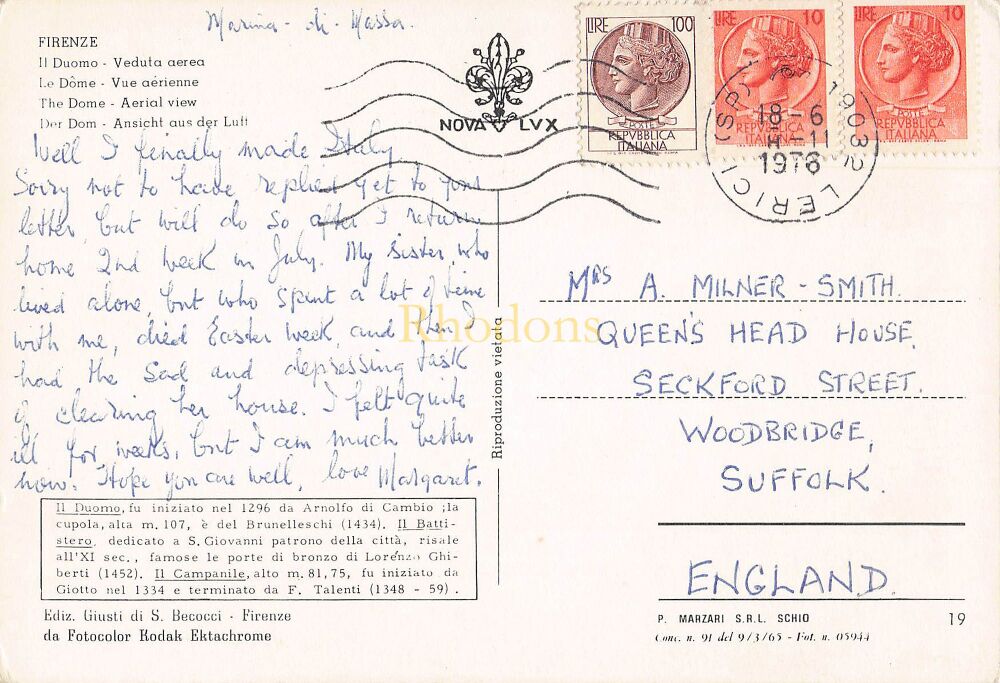 Marina - di - Massa.
FIRENZE
Il Duomo - Veduta aerea
Le Dôme - Vue aérienne
The Dome - Aerial view
Der Dom - Ansicht aus der Luft
NOVA LVX
LIRE 100
POSTE
REPVBBLICA
ITALIANA
LIRE 10
POSTE
REPVBBLICA
ITALIANA
LIRE 10
POSTE
REPVBBLICA
ITALIANA
19032 LERICI (SP)
18-6
1976
Well I finally made Italy.
Sorry not to have replied yet to your
letter, but will do so after I return
home 2nd week in July. My sister, who
lived alone, but who spent a lot of time
with me, died Easter week, and then I
had the sad and depressing task
of clearing her house. I felt quite
ill for weeks, but I am much better
now. Hope you are well, love Margaret.
Rhodons
Riproduzione vietata
MRS A. MILNER-SMITH.
QUEEN'S HEAD HOUSE,
SECKFORD STREET.
WOODBRIDGE,
SUFFOLK.
ENGLAND.
Il Duomo, fu iniziato nel 1296 da Arnolfo di Cambio ;la
cupola, alta m. 107, è del Brunelleschi (1434). Il Batti-
stero, dedicato a S. Giovanni patrono della città, risale
all'XI sec., famose le porte di bronzo di Lorenzo Ghi-
berti (1452). Il Campanile, alto m. 81,75, fu iniziato da
Giotto nel 1334 e terminato da F. Talenti (1348 - 59).
Ediz. Giusti di S. Becocci - Firenze
da Fotocolor Kodak Ektachrome
P. MARZARI S.R.L. SCHIO
19
Conc. n. 91 del 9/3/65 - Fot. n. 05944